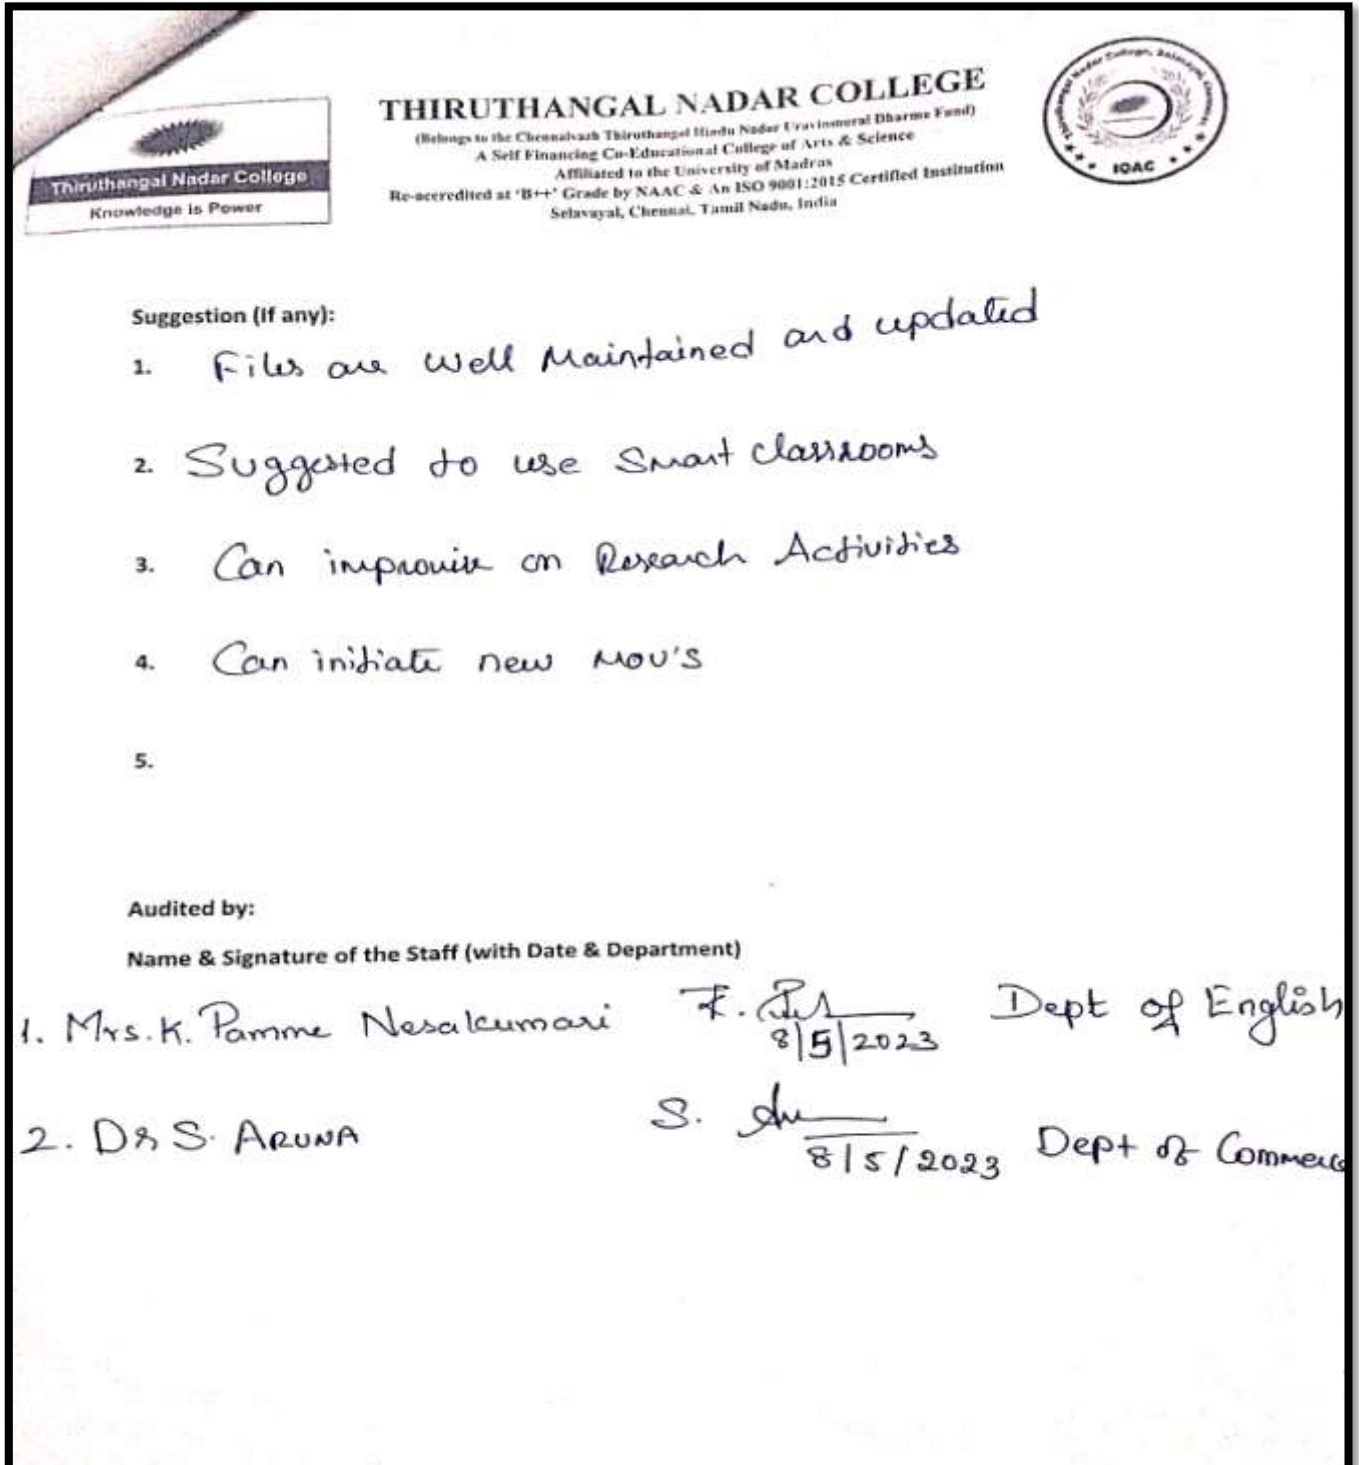 Thiruthangal Nadar College
Knowledge is Power
THIRUTHANGAL NADAR COLLEGE
(Belongs to the Chennaivazh Thiruthangal Hindu Nadar Uravinmurai Dharma Fund)
A Self Financing Co-Educational College of Arts & Science
Affiliated to the University of Madras
Re-accredited at 'B++' Grade by NAAC & An ISO 9001:2015 Certified Institution
Selavayal, Chennai, Tamil Nadu, India
Thiruthangal Nadar College, Selavayal, Chennai
IQAC
Suggestion (if any):
1. Files are Well Maintained and updated
2. Suggested to use Smart classrooms
3. Can improvise on Research Activities
4. Can initiate new MOU'S
5.
Audited by:
Name & Signature of the Staff (with Date & Department)
1. Mrs. K. Pamme Nesakumari K. 8/5/2023 Dept of English
2. Dr S. ARUNA S. 8/5/2023 Dept of Commerce